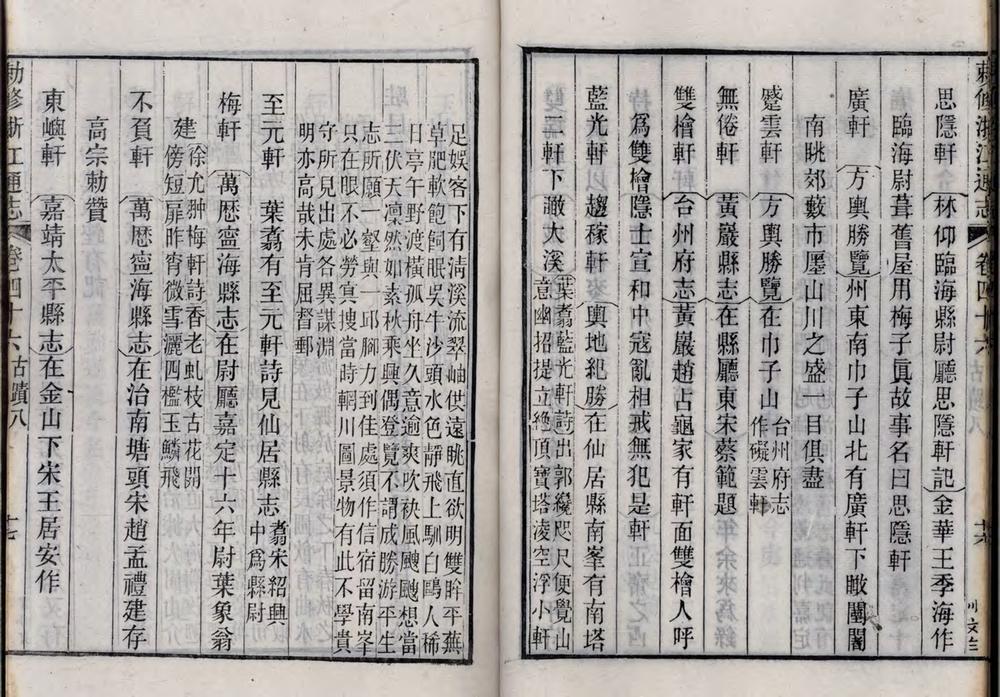 思隱軒林仰臨海縣尉廳思隱軒記金華王季海作
臨海尉葺舊屋用梅子眞故事名曰思隱軒
廣軒方輿勝覽州東南巾子山北有廣軒下瞰闤闠
南眺郊藪市廛山川之盛一目俱盡
蹙雲軒方輿勝覽在巾子山台州府志
作礙雲軒
無倦軒黃巖縣志在縣廳東宋蔡範題
雙檜軒台州府志黃巖趙占龜家有軒面雙檜人呼
爲雙檜隱士宣和中寇亂相戒無犯是軒
藍光軒 趨稼軒輿地紀勝在仙居縣南峯有南塔
二軒下瀫大溪葉翥藍光軒詩出郭纔咫尺便覺山
意幽招提立絶頂寶塔淩空浮小軒
勅修浙江通志 卷四十六 古蹟八
足娛客下有淸溪流翠岫供遠眺直欲明雙眸平蕪
草肥軟飽飼眠吳牛沙頭水色靜飛上馴白鷗人稀
日亭午野渡橫孤舟坐久意逾爽吹袂風颼颼想當
三伏天凛然如素秋乘興偶登覽不謂成勝游平生
志所願一壑與一邱腳力到佳處須作信宿留南峯
只在眼不必勞眞搜當時輞川圖景物有此不學貴
守所見出處各異謀淵
明亦高哉未肯屈督郵
至元軒 葉翥有至元軒詩見仙居縣志翥宋紹興
中爲縣尉
梅軒萬厯寧海縣志在尉廳嘉定十六年尉葉象翁
建徐允翀梅軒詩香老虬枝古花開
傍短扉昨宵微雪灑四檻玉鱗飛
不貟軒萬厯寧海縣志在治南塘頭宋趙孟禮建存
高宗勅贊
東嶼軒嘉靖太平縣志在金山下宋王居安作